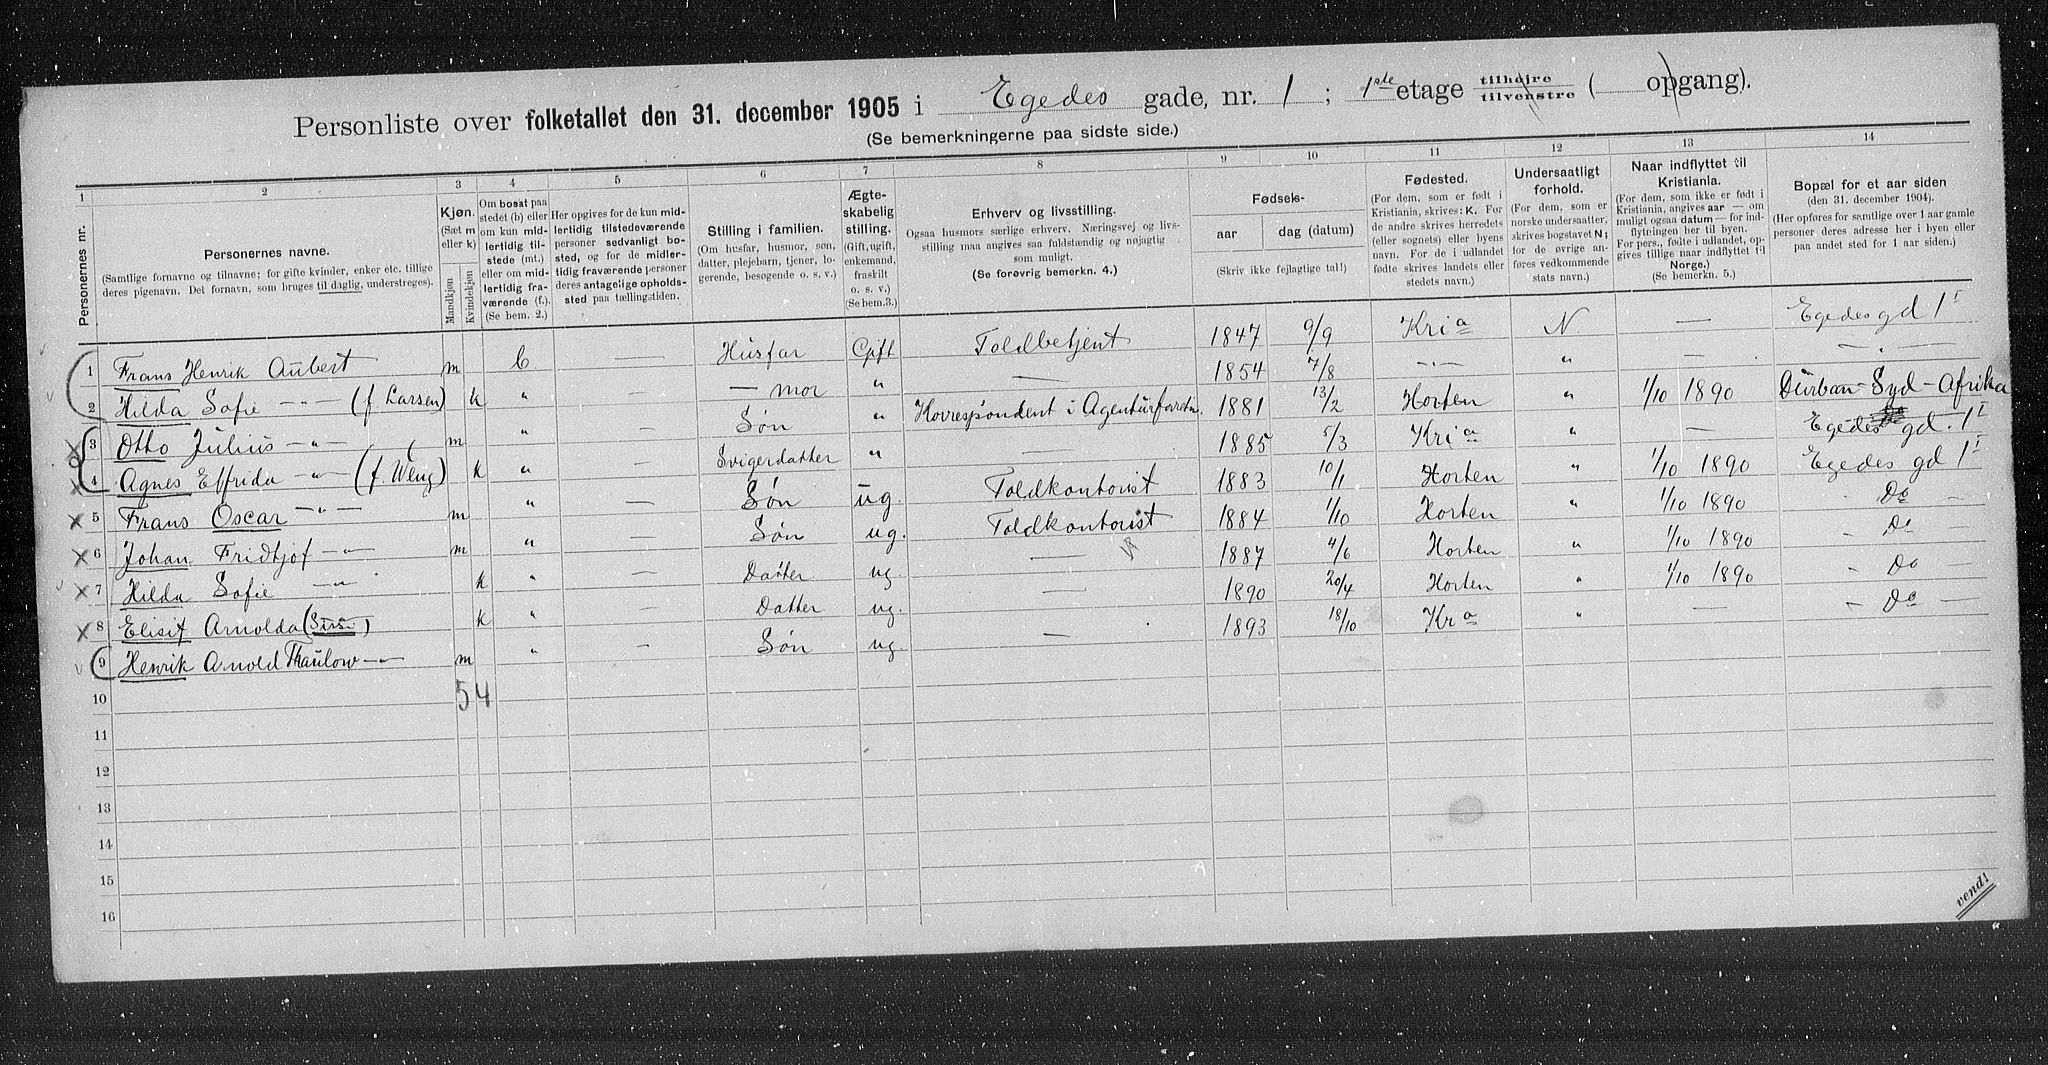 Personliste over folketallet den 31. december 1905 i Egedes gade, nr. 1 ; 1ste etage tilhøjre tilvenstre ( opgang).
(Se bemerkningerne paa sidste side.)
1 2 3 4 5 6 7 8 9 10 11 12 13 14
Personernes nr.
Personernes navne.
(Samtlige fornavne og tilnavne; for gifte kvinder, enker etc. tillige deres pigenavn. Det fornavn, som bruges til daglig, understreges).
Kjøn. (Sæt m eller k) Mandkjøn Kvindekjøn
Om bosat paa stedet (b) eller om kun midlertidig tilstede (mt.) eller om midlertidig fraværende (f.). (Se bem. 2.)
Her opgives for de kun midlertidig tilstedeværende personer sedvanligt bosted, og for de midlertidig fraværende personer deres antagelige opholdssted paa tællingstiden.
Stilling i familien.
(Om husfar, husmor, søn, datter, plejebarn, tjener, logerende, besøgende o. s. v.)
Ægteskabelig stilling. (Gift, ugift, enkemand, fraskilt o. s. v.) (Se bem. 3.)
Erhverv og livsstilling.
Ogsaa husmors særlige erhverv. Næringsvej og livsstilling maa angives saa fuldstændig og nøjagtig som muligt.
(Se forøvrig bemerkn. 4.)
Fødsels-
aar dag (datum)
(Skriv ikke fejlagtige tal!)
Fødested.
(For dem, som er født i Kristiania, skrives: K. For de andre skrives herredets (eller sognets) eller byens navn. For de i udlandet fødte skrives landets eller stedets navn.)
Undersaatligt forhold.
(For dem, som er norske undersaatter, skrives bogstavet N; for de øvrige anføres vedkommende stats navn.)
Naar indflyttet til Kristiania.
(For dem, som ikke er født i Kristiania, angives aar — om muligt ogsaa datum — for indflytningen her til byen. For pers., fødte i udlandet, opgives tillige naar indflyttet til Norge.) (Se bemerkn. 5.)
Bopæl for et aar siden (den 31. december 1904).
(Her opføres for samtlige over 1 aar gamle personer deres adresse her i byen eller paa andet sted for 1 aar siden.)
1 Frans Henrik Aubert m b — Husfar Gift Toldbetjent 1847 9/9 Kria N — Egedes gd 1 I
2 Hilda Sofie —"— (f. Larsen) k " — — mor " — 1854 7/8 —"— " — — " —
3 Otto Julius —"— m " — Søn " Korrespondent i Agenturforretn. 1881 13/2 Horten " 1/10 1890 Durban-Syd-Afrika
4 Agnes Elfrida —"— (f. Weng) k " — Svigerdatter " — 1885 5/3 Kria " — Egedes gd. 1 I
5 Frans Oscar —"— m " — Søn ug. Toldkontorist 1883 10/1 Horten " 1/10 1890 Egedes gd 1 I
6 Johan Fridtjof —"— m " — Søn ug. Toldkontorist 1884 1/10 Horten " 1/10 1890 Do —
7 Hilda Sofie —"— k " — Datter ug — 1887 4/6 Horten " 1/10 1890 Do
8 Elisif Arnolda (Sissi) k " — Datter ug. — 1890 20/4 Horten " 1/10 1890 Do
9 Henrik Arnold Thaulow —"— m " — Søn ug. — 1893 18/10 Kra " — Do —
10 5 4
11
12
13
14
15
16
vend!